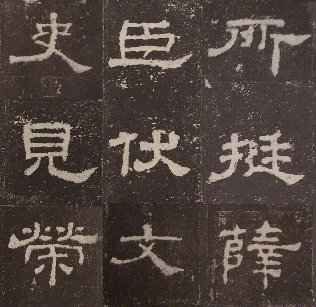 所挺薛
臣伏文
史見榮